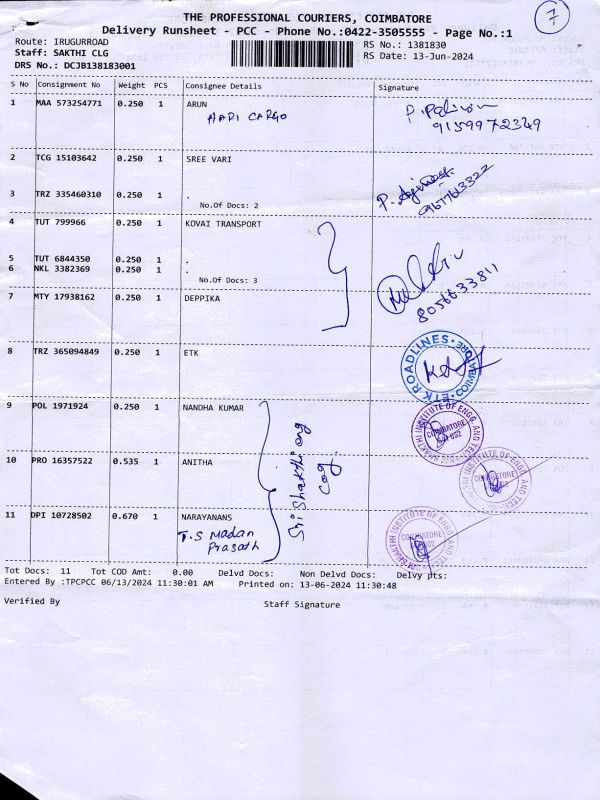 7
THE PROFESSIONAL COURIERS, COIMBATORE
Delivery Runsheet - PCC - Phone No.:0422-3505555 - Page No.:1
Route: IRUGURROAD
RS No.: 1381830
Staff: SAKTHI CLG
RS Date: 13-Jun-2024
DRS No.: DCJB138183001
S No Consignment No Weight PCS Consignee Details Signature
1 MAA 573254771 0.250 1 ARUN
HARI CARGO
9159972349
2 TCG 15103642 0.250 1 SREE VARI
3 TRZ 335460310 0.250 1 .
No.Of Docs: 2
4 TUT 799966 0.250 1 KOVAI TRANSPORT
5 TUT 6844350 0.250 1 .
6 NKL 3382369 0.250 1 .
No.Of Docs: 3
8056633811
7 MTY 17938162 0.250 1 DEPPIKA
8 TRZ 365094849 0.250 1 ETK
ETK ROADLINES COIMBATORE
9 POL 1971924 0.250 1 NANDHA KUMAR
Sri Shakthi eng
10 PRO 16357522 0.535 1 ANITHA
11 DPI 10728502 0.670 1 NARAYANANS
T.S Madan
Prasath
Tot Docs: 11 Tot COD Amt: 0.00 Delvd Docs: Non Delvd Docs: Delvy pts:
Entered By :TPCPCC 06/13/2024 11:30:01 AM Printed on: 13-06-2024 11:30:48
Verified By Staff Signature